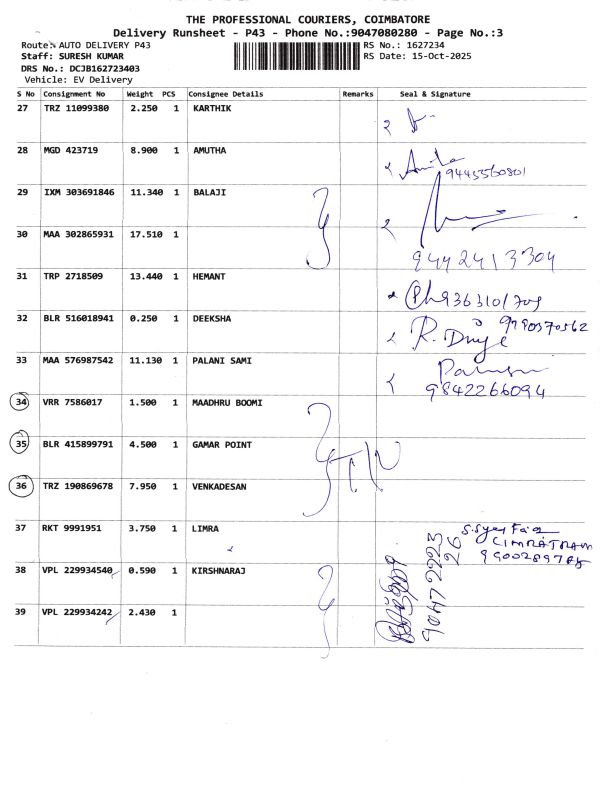 THE PROFESSIONAL COURIERS, COIMBATORE
Delivery Runsheet - P43 - Phone No.:9047080280 - Page No.:3
Route: AUTO DELIVERY P43 RS No.: 1627234
Staff: SURESH KUMAR RS Date: 15-Oct-2025
DRS No.: DCJB162723403
Vehicle: EV Delivery
S No Consignment No Weight PCS Consignee Details Remarks Seal & Signature
27 TRZ 11099380 2.250 1 KARTHIK
28 MGD 423719 8.900 1 AMUTHA
9445560801
29 IXM 303691846 11.340 1 BALAJI
30 MAA 302865931 17.510 1
9442413304
31 TRP 2718509 13.440 1 HEMANT
32 BLR 516018941 0.250 1 DEEKSHA 9790370562
33 MAA 576987542 11.130 1 PALANI SAMI
9842266094
34 VRR 7586017 1.500 1 MAADHRU BOOMI
35 BLR 415899791 4.500 1 GAMAR POINT
36 TRZ 190869678 7.950 1 VENKADESAN
37 RKT 9991951 3.750 1 LIMRA
38 VPL 229934540 0.590 1 KIRSHNARAJ
39 VPL 229934242 2.430 1